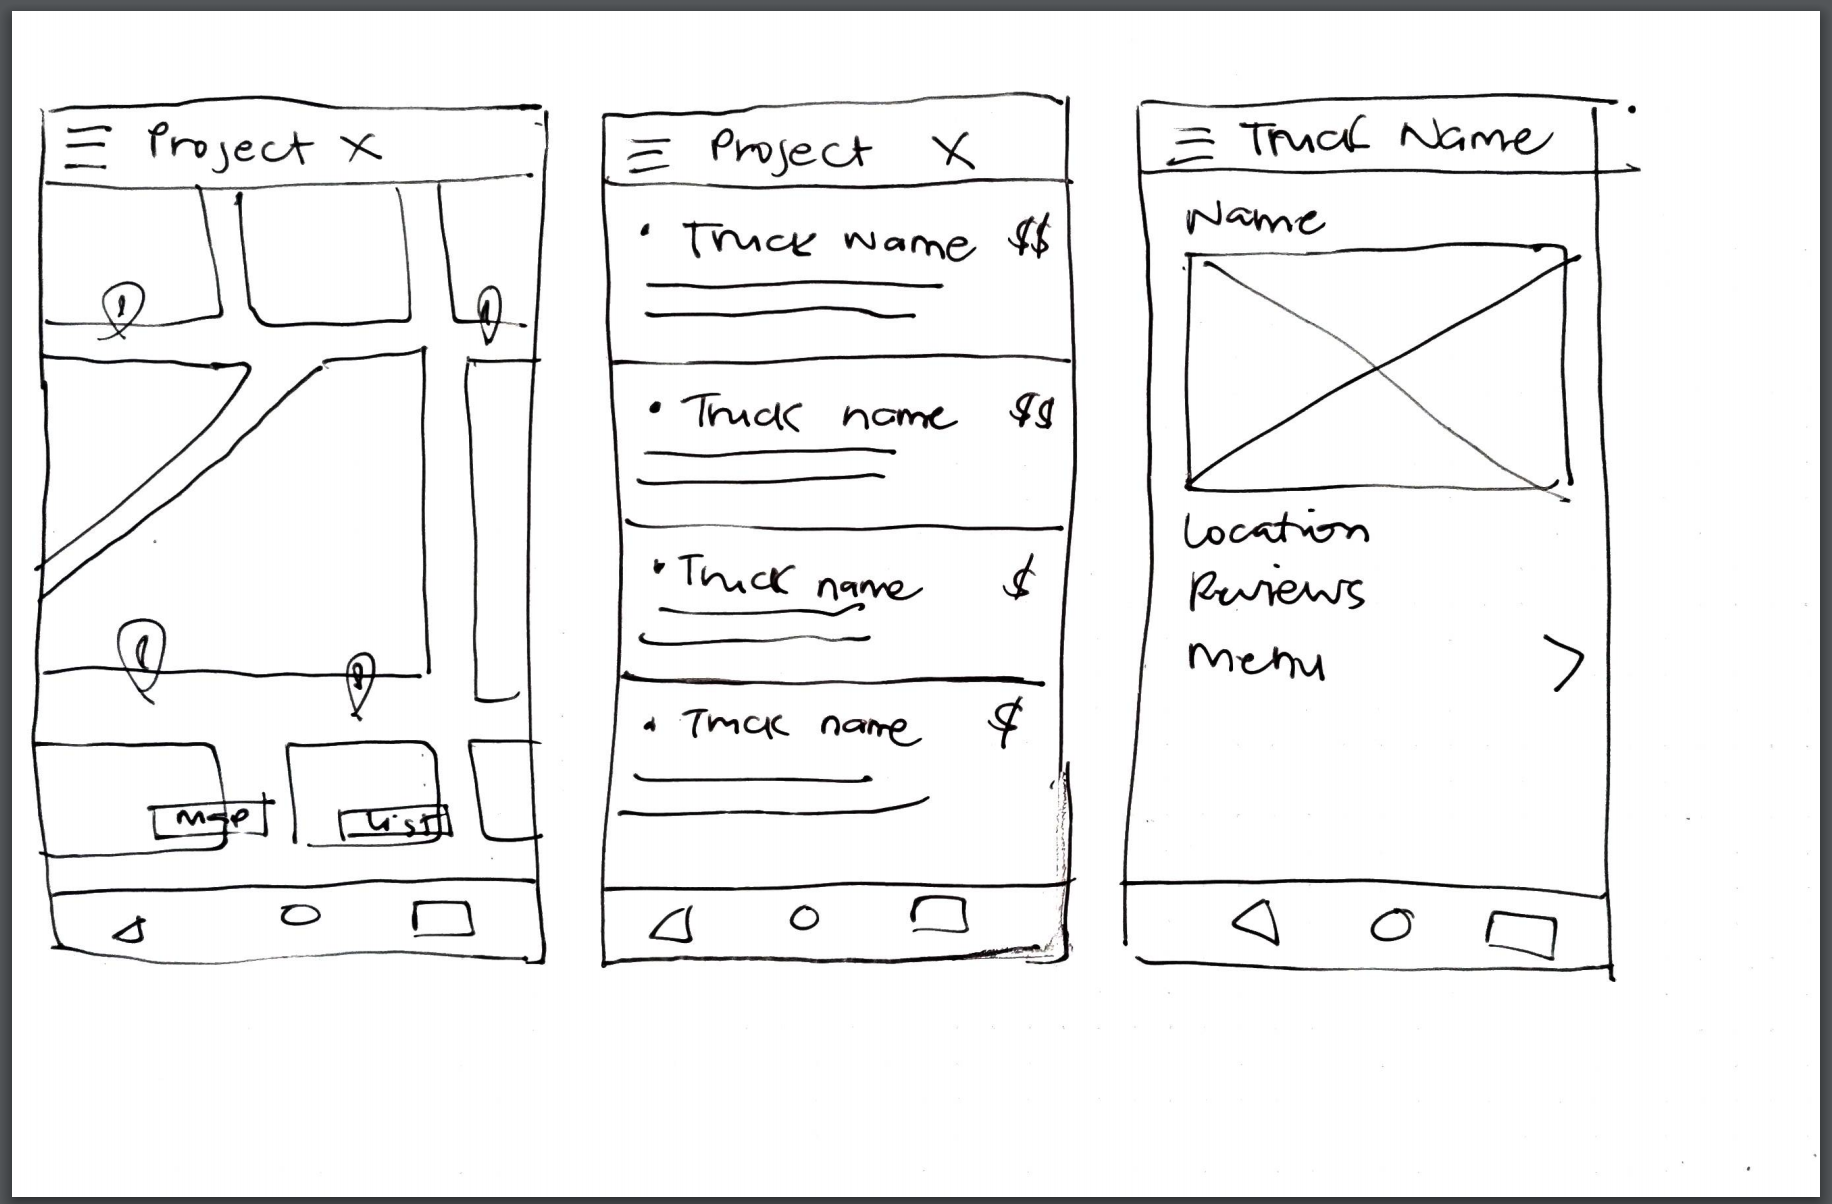 Project X
Map
List
Project X
Truck Name $$
Truck name $$
Truck name $
Truck name $
Truck Name
Name
Location
Reviews
Menu